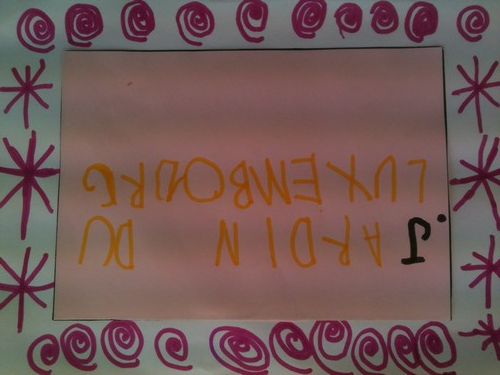 JARDIN DU
LUXEMBOURG